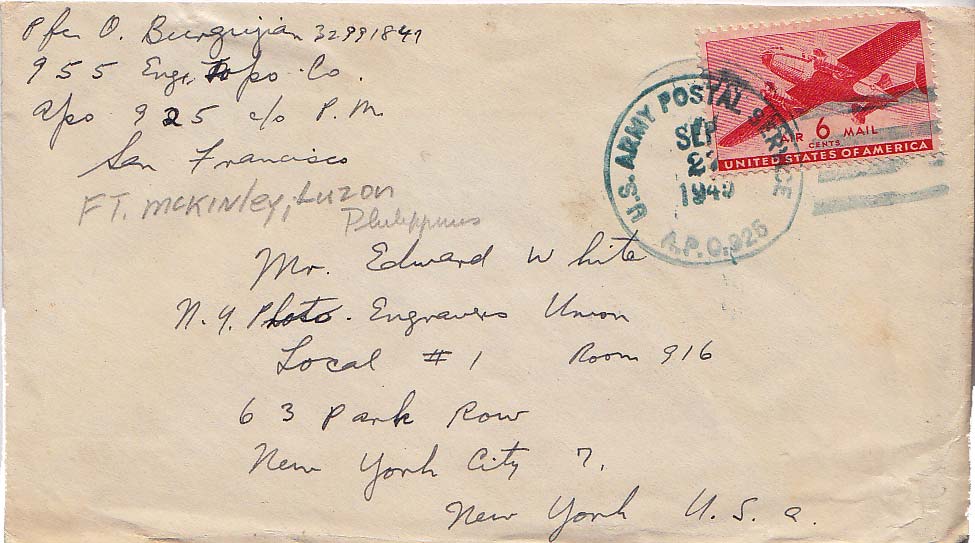 Pfc O. Burgujian 32991847
955 Eng. Topo. Co.
Apo 925 c/o P.M.
San Francisco
FT. McKinley, Luzon
Philippines
U.S. ARMY POSTAL SERVICE
SEP
194
A.P.O. 925
AIR 6 MAIL
CENTS
UNITED STATES OF AMERICA
Mr. Edward White
N.Y. Photo. Engravers Union
Local #1 Room 916
63 Park Row
New York City 7,
New York U.S.A.